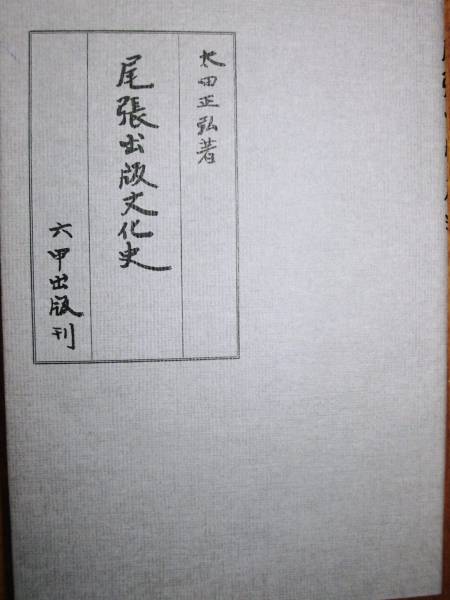 太田正弘著
尾張出版文化史
六甲出版刊